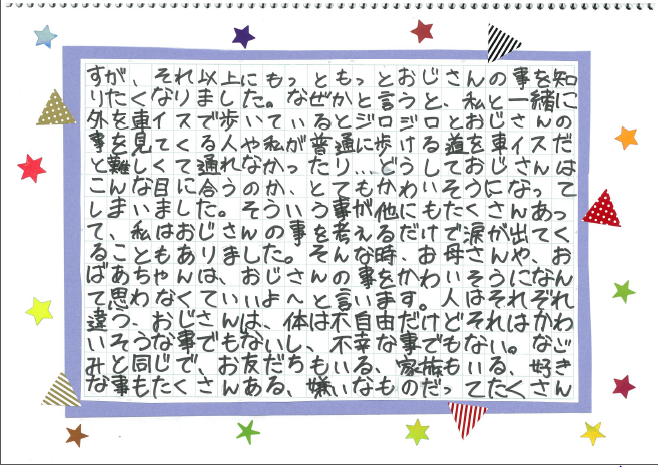 すが、それ以上にもっともっとおじさんの事を知
りたくなりました。なぜかと言うと、私と一緒に
外を車イスで歩いているとジロジロとおじさんの
事を見てくる人や私が普通に歩ける道を車イスだ
と難しくて通れなかったり…どうしておじさんは
こんな目に合うのか、とてもかわいそうになって
しまいました。そういう事が他にもたくさんあっ
て、私はおじさんの事を考えるだけで涙が出てく
ることもありました。そんな時、お母さんや、お
ばあちゃんは、おじさんの事をかわいそうになん
て思わなくていいよ〜と言います。人はそれぞれ
違う、おじさんは、体は不自由だけどそれはかわ
いそうな事でもないし、不幸な事でもない。なご
みと同じで、お友だちもいる、家族もいる、好き
な事もたくさんある、嫌いなものだってたくさん